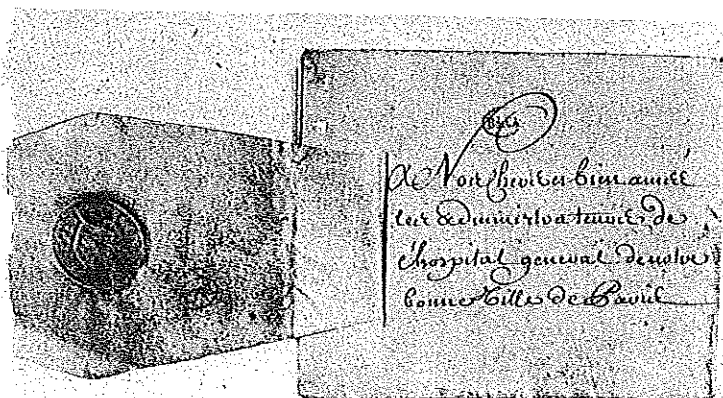 A Nos chers et bien amée
les administrateurs de
l'hospital general de notre
bonne Ville de Paris